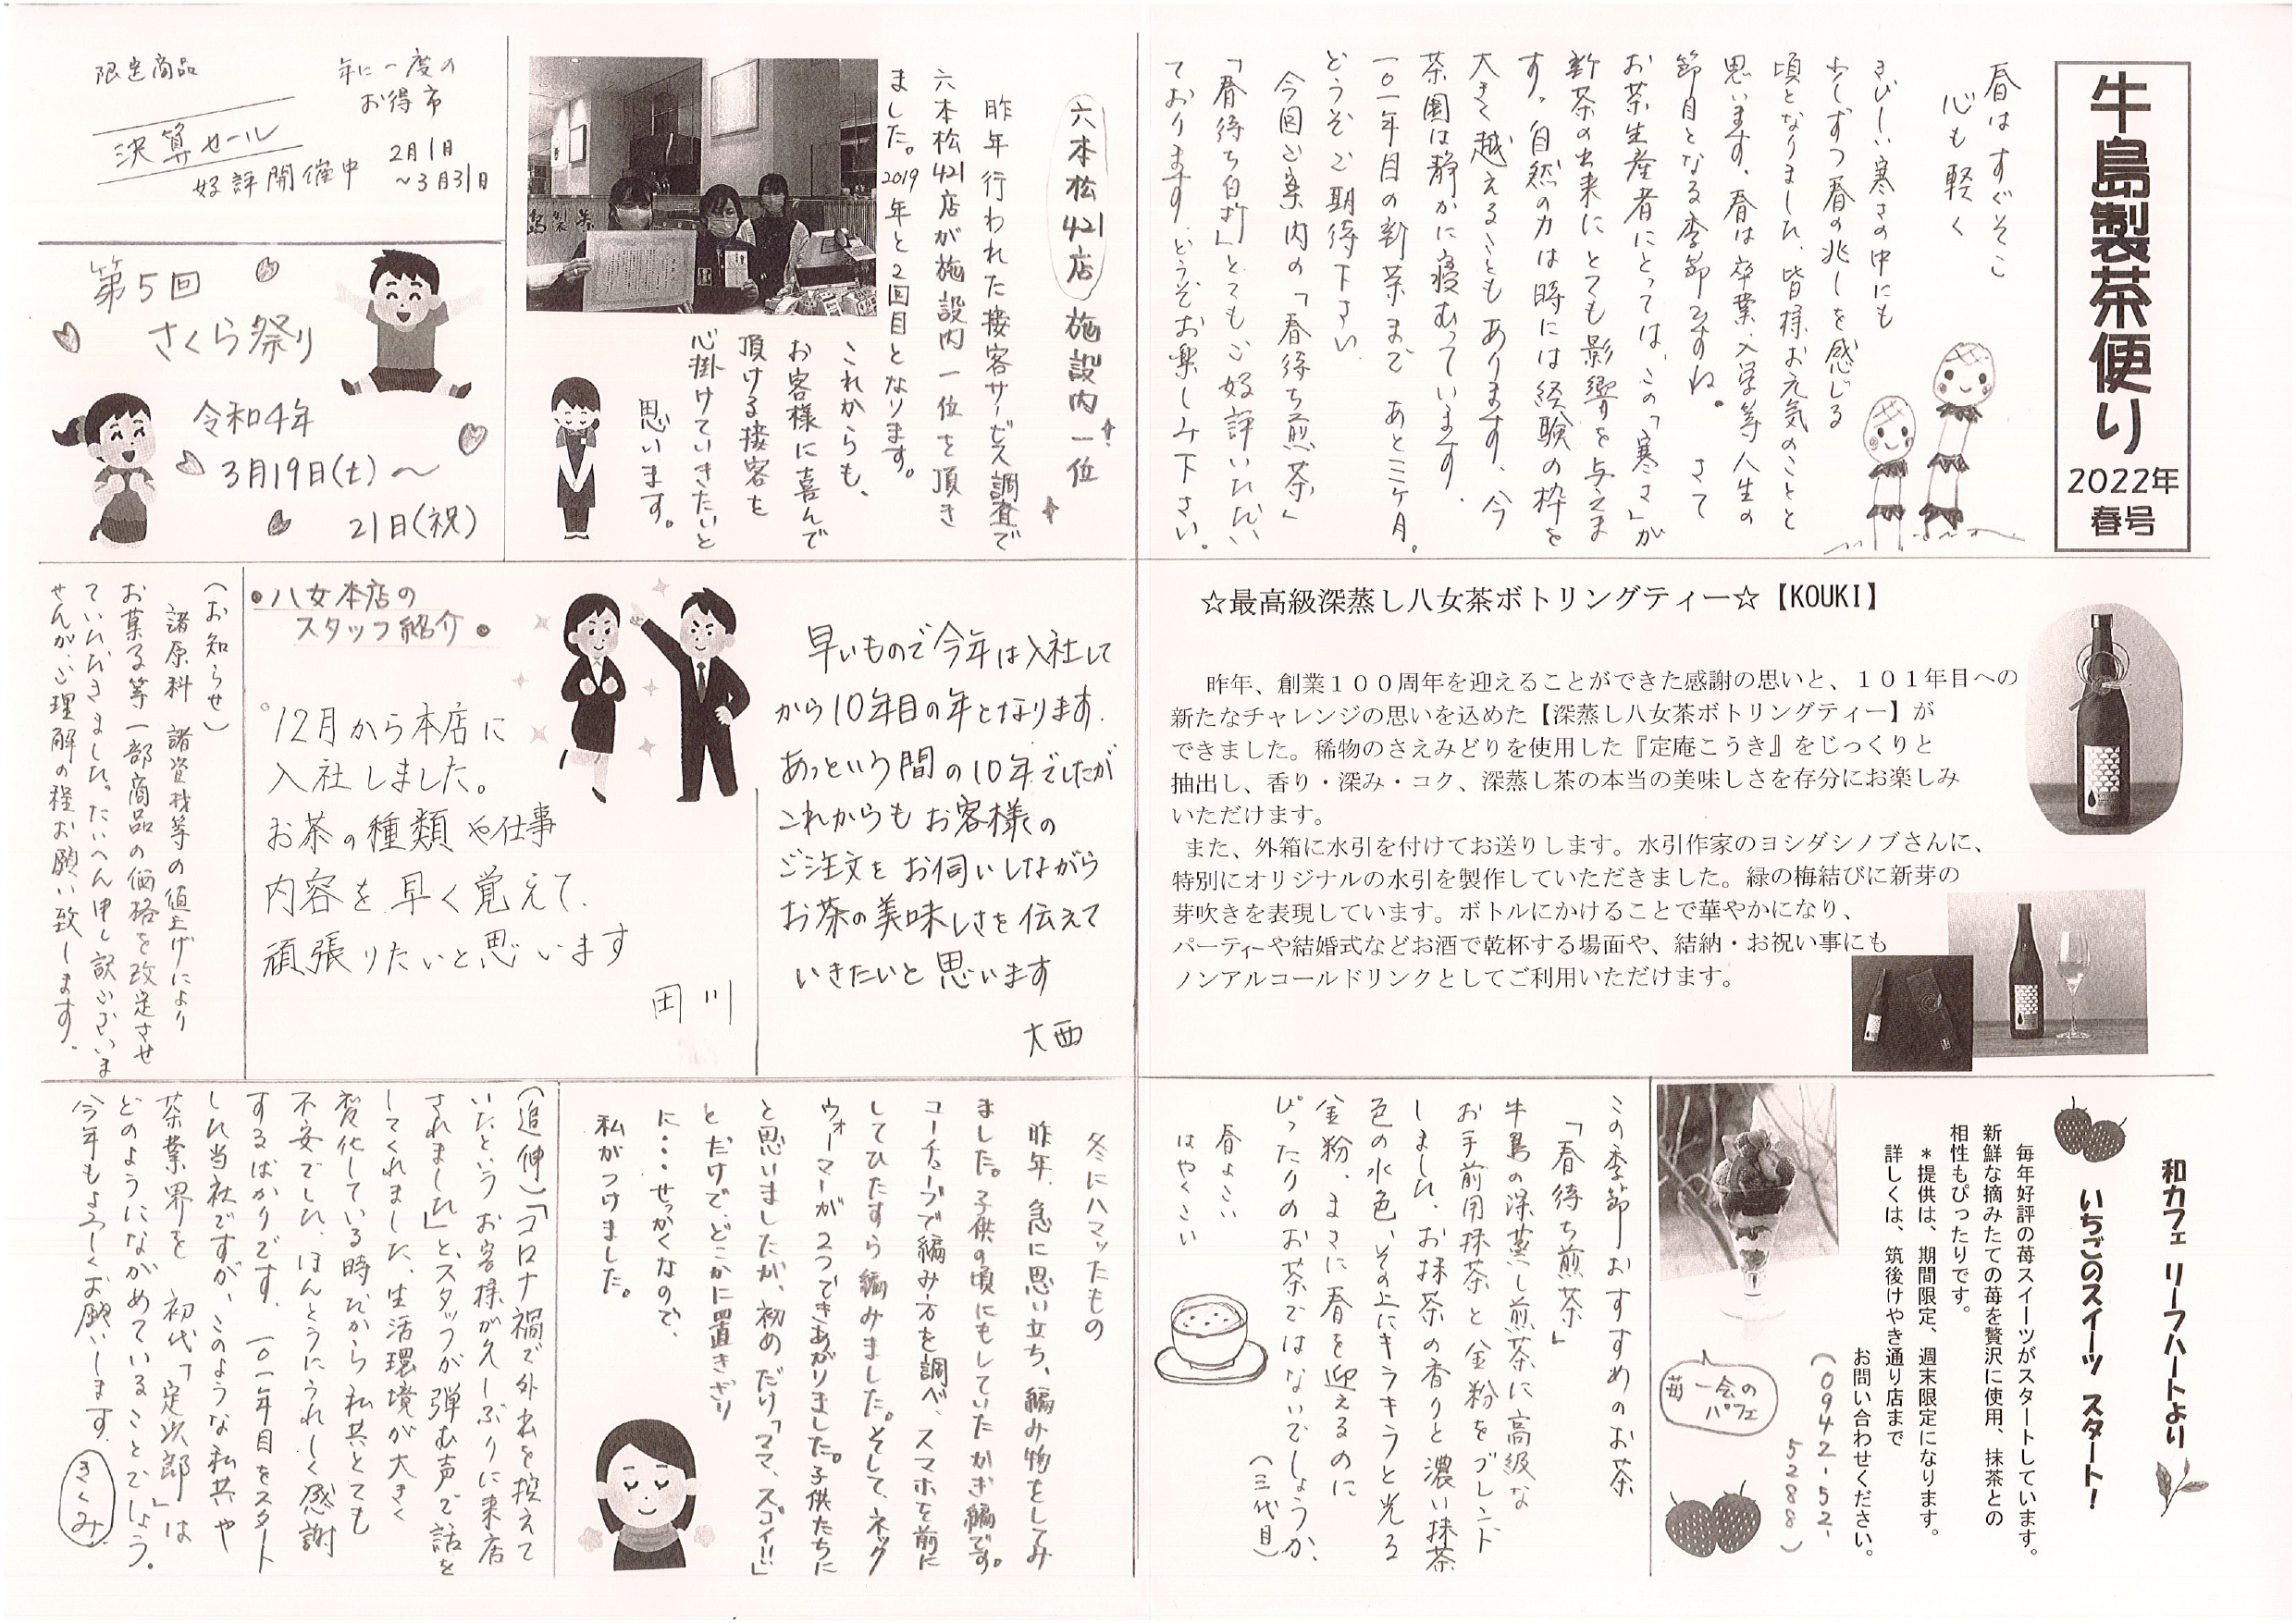 牛島製茶便り
2022年
春号
春はすぐそこ
心も軽く
きびしい寒さの中にも
少しずつ春の兆しを感じる
頃となりました。皆様お元気のことと
思います。春は卒業・入学等人生の
節目となる季節ですね。 さて
お茶生産者にとっては、この「寒さ」が
新茶の出来にとても影響を与えま
す。自然の力は時には経験の枠を
大きく越えることもあります。今
茶園は静かに寝むっています。
一〇一年目の新茶まで あと三ヶ月。
どうぞご期待下さい。
今回ご案内の「春待ち煎茶」
「春待ち白折」とてもご好評いただい
ております。どうぞお楽しみ下さい。
六本松421店 施設内一位
昨年行われた接客サービス調査で
六本松421店が施設内一位を頂き
ました。2019年と2回目となります。
これからも、
お客様に喜んで
頂ける接客を
心掛けていきたいと
思います。
年に一度の
お得市
限定商品
決算セール
好評開催中
2月1日
～3月31日
第5回
さくら祭り
令和4年
3月19日(土)～
21日(祝)
☆最高級深蒸し八女茶ボトリングティー☆【KOUKI】
昨年、創業１００周年を迎えることができた感謝の思いと、１０１年目への
新たなチャレンジの思いを込めた【深蒸し八女茶ボトリングティー】が
できました。稀物のさえみどりを使用した『定庵こうき』をじっくりと
抽出し、香り・深み・コク、深蒸し茶の本当の美味しさを存分にお楽しみ
いただけます。
また、外箱に水引を付けてお送りします。水引作家のヨシダシノブさんに、
特別にオリジナルの水引を製作していただきました。緑の梅結びに新芽の
芽吹きを表現しています。ボトルにかけることで華やかになり、
パーティーや結婚式などお酒で乾杯する場面や、結納・お祝い事にも
ノンアルコールドリンクとしてご利用いただけます。
早いもので今年は入社して
から10年目の年となります.
あっという間の10年でしたが
これからもお客様の
ご注文をお伺いしながら
お茶の美味しさを伝えて
いきたいと思います
大西
・八女本店の
スタッフ紹介・
12月から本店に
入社しました。
お茶の種類や仕事
内容を早く覚えて、
頑張りたいと思います
田川
（お知らせ）
諸原料 諸資材等の値上げにより
お菓子等一部商品の価格を改定させ
ていただきました。たいへん申し訳ございま
せんが、ご理解の程お願い致します。
和カフェ リーフハートより
いちごのスイーツ スタート！
毎年好評の苺スイーツがスタートしています。
新鮮な摘みたての苺を贅沢に使用、抹茶との
相性もぴったりです。
＊提供は、期間限定、週末限定になります。
詳しくは、筑後けやき通り店まで
お問い合わせください。
（0942-52-
5288）
苺一会の
パフェ
この季節おすすめのお茶
「春待ち煎茶」
牛島の深蒸し煎茶に高級な
お手前用抹茶と金粉をブレンド
しました。お抹茶の香りと濃い抹茶
色の水色、その上にキラキラと光る
金粉、まさに春を迎えるのに
ぴったりのお茶ではないでしょうか。
（三代目）
春よこい
はやくこい
冬にハマッたもの
昨年、急に思い立ち、編み物をしてみ
ました。子供の頃にもしていたかぎ編です。
ユーチューブで編み方を調べ、スマホを前に
してひたすら編みました。そして、ネック
ウォーマーが2つできあがりました。子供たちに
と思いましたが、初めだけ「ママ、スゴイ!!」
とだけで、どこかに置きざり
に・・・せっかくなので、
私がつけました。
（追伸）「コロナ禍で外出を控えて
いたというお客様が久しぶりに来店
されました」と、スタッフが弾む声で話を
してくれました。生活環境が大きく
変化している時だから私共とても
不安でした。ほんとうにうれしく感謝
するばかりです。一〇一年目をスタート
した当社ですが、このような私共や
茶業界を 初代「定次郎」は
どのようにながめていることでしょう。
今年もよろしくお願いします。
きくみ